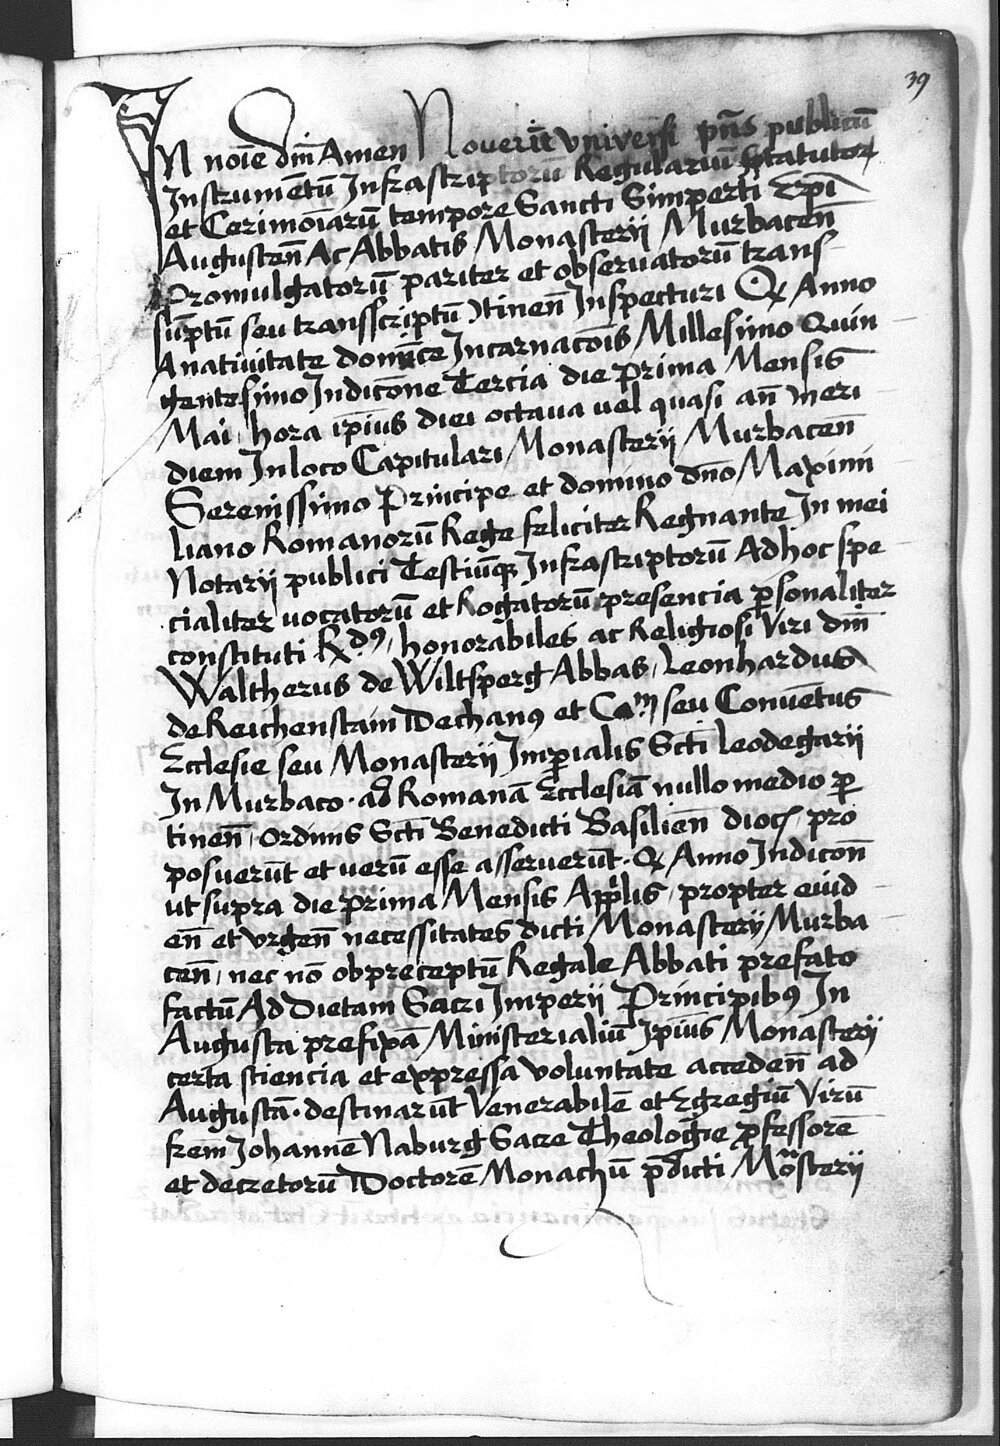 39
IN noīe dn̄i Amen Noverīt vniversi pn̄s publicū
Instrumētū Infrascriptorū Regulariū Statutor̄
et Cerimoīarū tempore Sancti Simperti Ep̄i
Augusten̄ Ac Abbatis Monasterij Murbacen̄
Promulgatorū pariter et obseruatorū trans
sūptū seu transscriptū ↄtinen̄ Inspecturi Qͫ Anno
Anativitate dominice Incarnacōis Millesimo Quin
gentesimo Indicōne Tercia die prima Mensis
Mai, hora ip̄ius diei octaua uel quasi an̄ meri
diem In loco Capitulari Monasterij Murbacen̄
Serenissimo Principe et domino dn̄o Maximi
liano Romanorū Rege feliciter Regnante In mei
Notarij publici Testiūq̄ Infrascriptorū Ad hoc spe
cialiter uocatorū et Rogatorū presencia p̱sonaliter
constituti R̄dꝰ, honorabiles ac Religiosi Viri dn̄i
Waltherus de Wiltsperg Abbas, Leonhardus
de Reichenstain Dechanꝰ et Cam̄ seu Conuētus
Ecclesie seu Monasterij Imp̱ialis Scti Leodegarij
In Murbaco. ad Romanā Ecclesiā nullo medio p̱
tinen̄, ordinis Scti Benedicti Basilien̄ dioc̄, pro
posuerūt et uerū esse asseruerūt. Qͫ Anno Indicōn
ut supra die prima Mensis Apprilis, propter euid
en̄ et vrgen̄ necessitates dicti Monasterij Murba
cen̄, nec nō ob preceptū Regale Abbati prefato
factū Ad Dietam Sacri Imperij Principibꝰ In
Augusta prefixā Ministerialiū Ip̄ius Monasterij
certa sciencia et expressa voluntate acceden̄ ad
Augustā. destinarūt Venerabilē et Egregiū Virū
frem̄ Johannē Naburg Sacre Theologie ꝓfessorē
et decretorū Doctorē Monachū p̄dicti Mōsterij